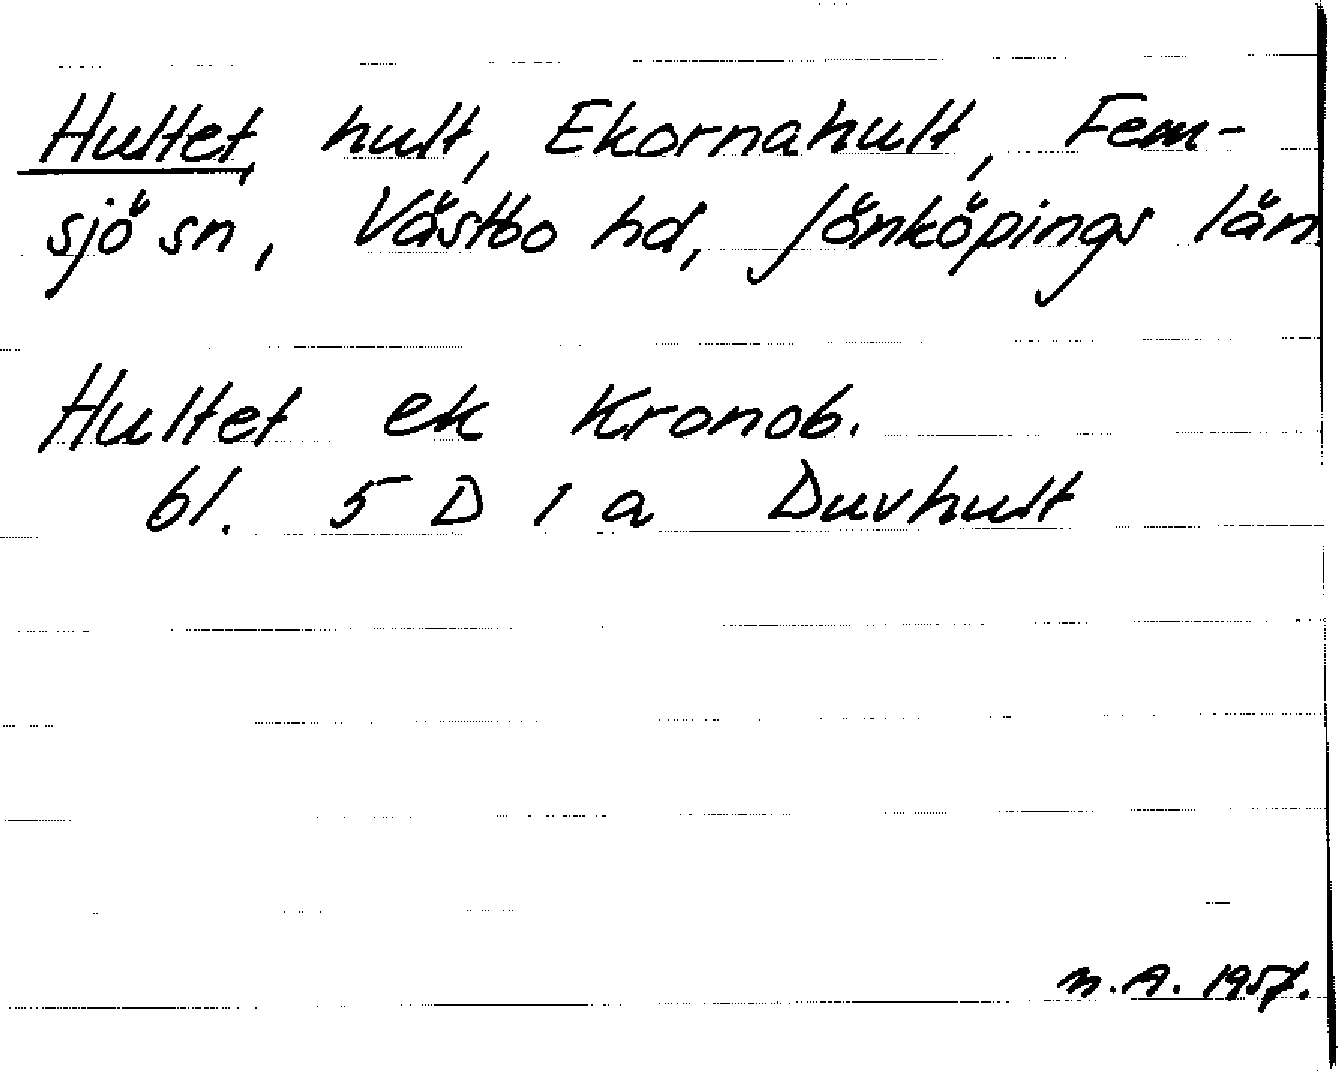 Hultet, hult, Ekornahult, Fem-
sjö sn, Västbo hd, Jönköpings län
Hultet ek Kronob.
bl. 5 D 1 a Duvhult
M.A. 1957.